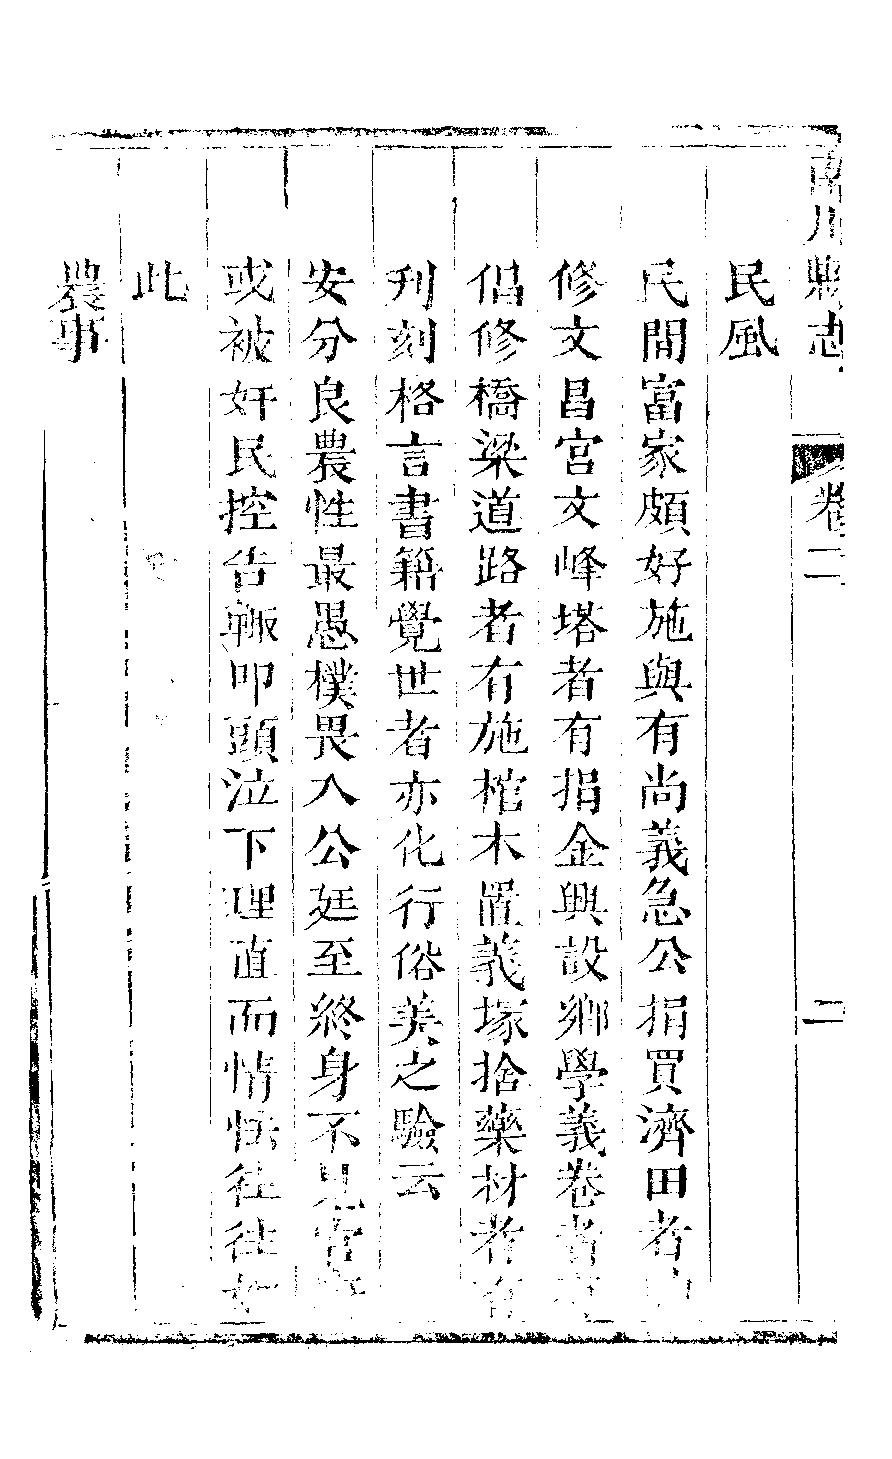 南川縣志 卷二 二
民風
民間富家頗好施與有尚義急公捐買濟田者有
修文昌宮文峰塔者有捐金興設鄉學義卷者有
倡修橋梁道路者有施棺木置義塚捨藥材者有
刊刻格言書籍覺世者亦化行俗美之驗云
安分良農性最愚樸畏入公廷至終身不見官
或被奸民控告輒叩頭泣下理直而情怯往往如
此
農事